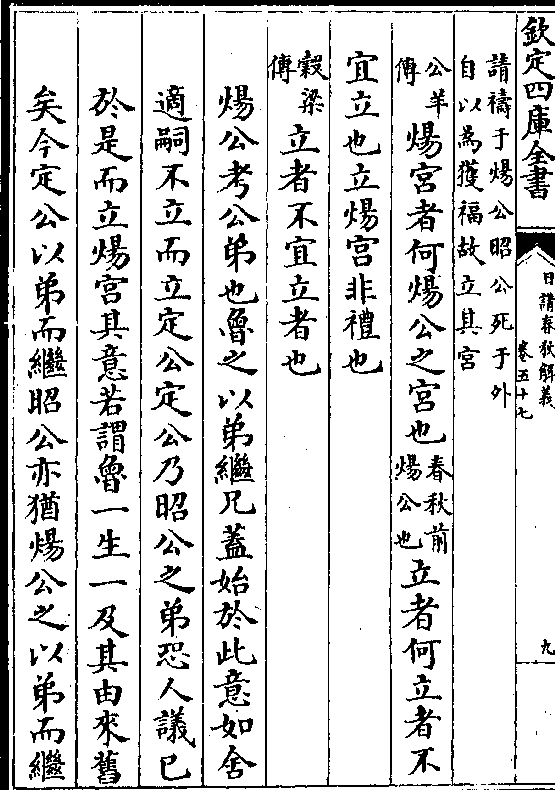 欽定四庫全書
日講春秋解義
卷五十七
九
請禱于煬公昭公死于外
自以為獲福故立其宮
公羊
傳
煬宮者何煬公之宮也
春秋前
煬公也
立者何立者不
宜立也立煬宮非禮也
穀梁
傳
立者不宜立者也
煬公考公弟也魯之以弟繼兄蓋始於此意如舍
適嗣不立而立定公定公乃昭公之弟恐人議已
於是而立煬宮其意若謂魯一生一及其由來舊
矣今定公以弟而繼昭公亦猶煬公之以弟而繼